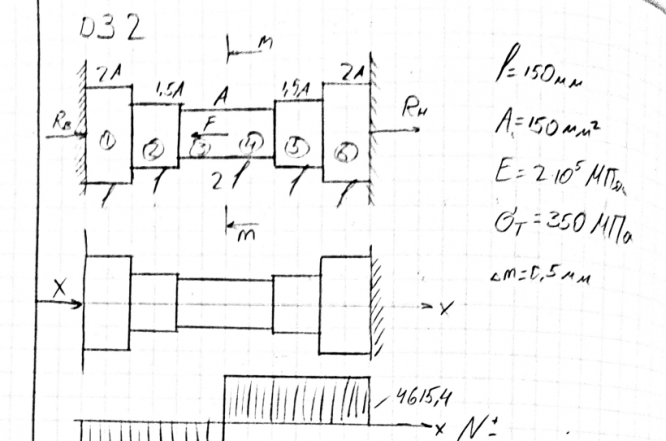 DЗ 2
m
2A
1,5A
A
1,5A
2A
Rв
F
Rн
①
②
③
④
⑤
⑥
l
l
2l
l
l
m
l=150мм
A=150мм²
E=2·10⁵ МПа
σт=350МПа
m=0,5мм
X
x
4615,4
x
N